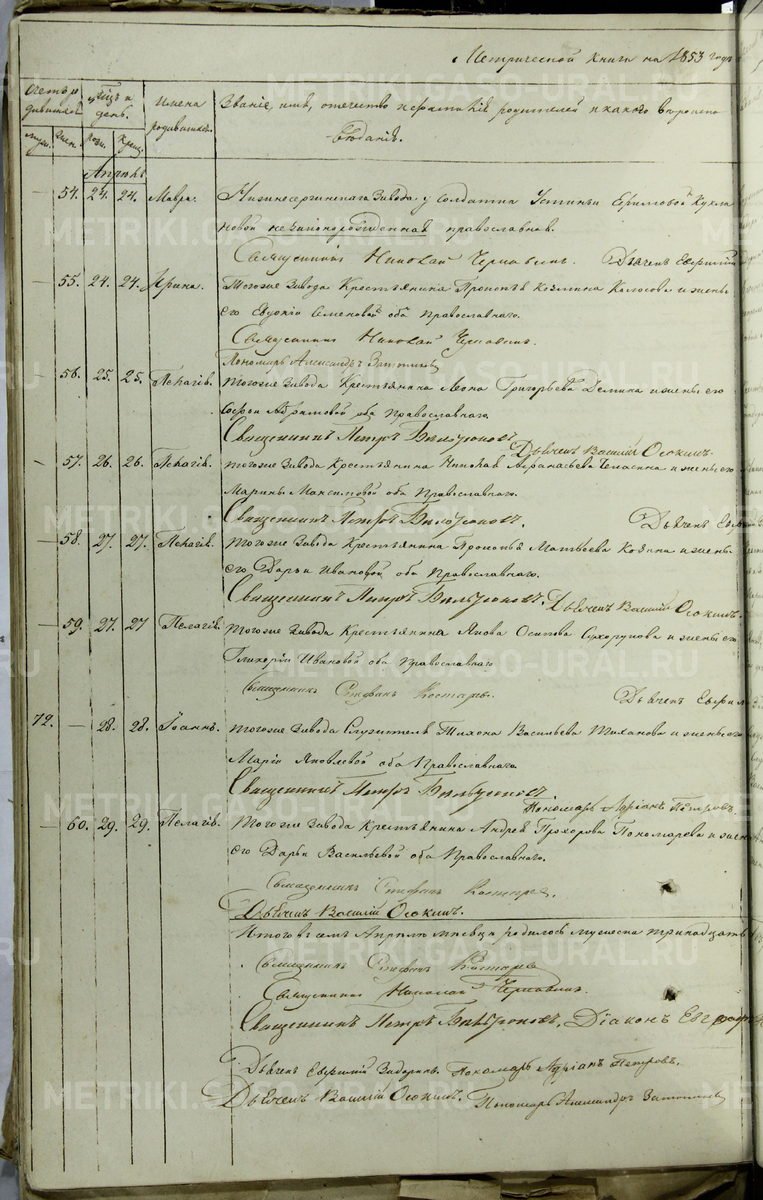 Метрической книги на 1853 годъ
Счетъ родившихся мѣсяцъ и день. Имена родившихся. Званіе, имя, отечество и фамилія родителей и какого вѣроисповѣданія.
муж. жен. рожд. крещ.
Апрѣль
— 54. 24. 24. Мавра. Нижнесергинскаго завода у солдатки Устиньи Ефимовой
незаконнорожденная православной.
Священникъ Николай Дьячекъ Евфимій
— 55. 24. 24. Ирина. Тогоже завода Крестьянина Прокопья Козмина Колосова и жены
его Евдокіи Семеновой оба Православнаго.
Священникъ Николай
Пономарь Александръ
— 56. 25. 25. Пелагія. Тогоже завода Крестьянина Леона Григорьева Демина и жены его
Абрамовой оба Православнаго
Священникъ Петръ
Дьячекъ Василій Осокинъ.
— 57. 26. 26. Пелагія. тогоже завода Крестьянина Николая Афанасьева и жены его
Марины Максимовой оба Православнаго.
Священникъ Петръ Дьячекъ
— 58. 27. 27. Пелагія. Тогоже завода Крестьянина Прокопья Матвѣева Козина и жены
его Дарьи Ивановой оба Православнаго.
Священникъ Петръ Дьячекъ Василій Осокинъ.
— 59. 27. 27 Пелагія. Тогоже завода Крестьянина Якова Осипова Сухорукова и жены его
Гликеріи Ивановой оба Православнаго
Священникъ Стефанъ Костаревъ. Дьячекъ
72. — 28. 28. Іоаннъ. тогоже завода Служителя Тихона Васильева Тиханова и жены его
Маріи Яковлевой оба Православнаго
Священникъ Петръ
Пономарь Адріанъ Петровъ.
— 60. 29. 29. Пелагія. Тогоже завода Крестьянина Андрея Прохорова Пономарева и жены
его Дарьи Васильевой оба Православнаго.
Священникъ Стефанъ Костаревъ.
Дьячекъ Василій Осокинъ.
Итого въ семъ Апрѣлѣ мѣсяцѣ родилось мужеска тринадцать
Священникъ Стефанъ Костаревъ
Священникъ Николай
Священникъ Петръ Діаконъ
Дьячекъ Евфимій Пономарь Адріанъ Петровъ.
Дьячекъ Василій Осокинъ. Пономарь Александръ
METRIKI.GASO-URAL.RU